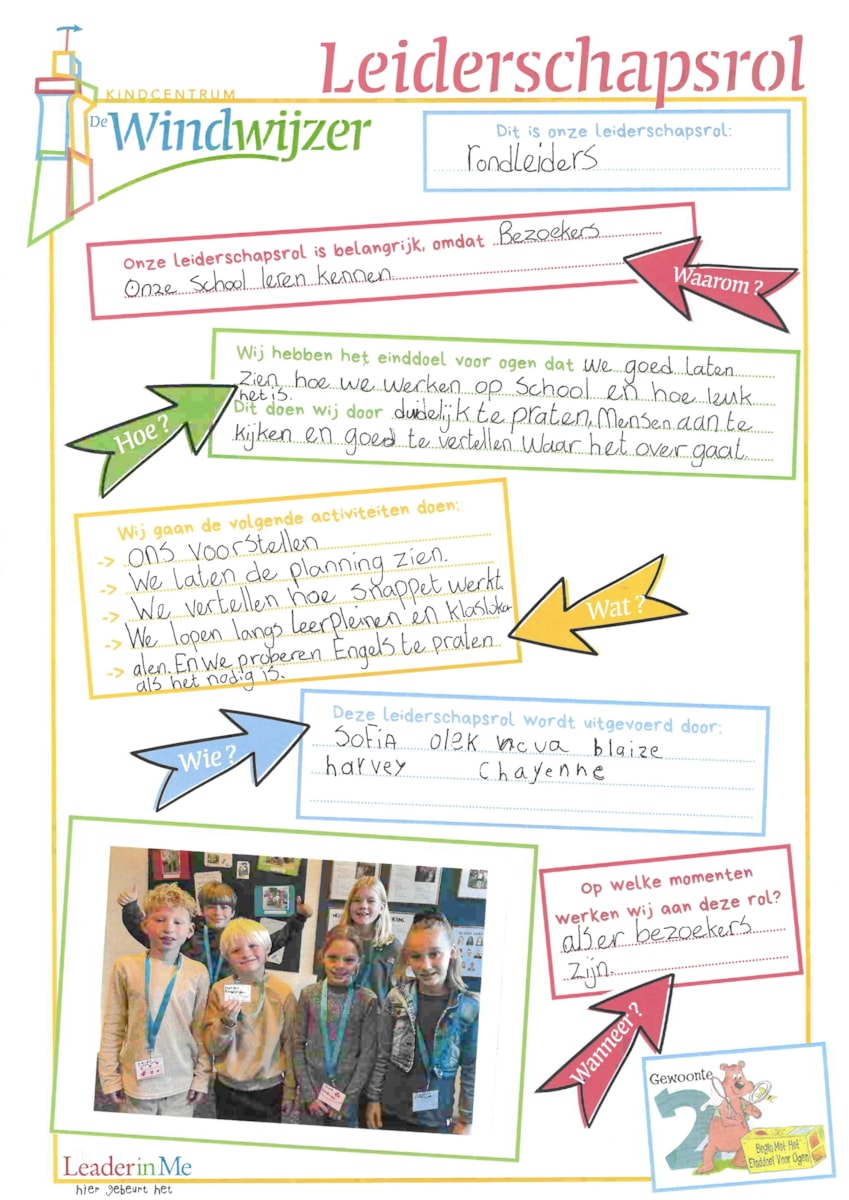 Leiderschapsrol
KINDCENTRUM
De Windwijzer
Dit is onze leiderschapsrol:
rondleiders
Onze leiderschapsrol is belangrijk, omdat Bezoekers
Onze School leren kennen.
Waarom?
Wij hebben het einddoel voor ogen dat we goed laten
zien hoe we werken op School en hoe leuk
het is.
Dit doen wij door duidelijk te praten, Mensen aan te
kijken en goed te vertellen waar het over gaat.
Hoe?
Wij gaan de volgende activiteiten doen:
-> ons voorstellen
-> We laten de planning zien.
-> We vertellen hoe snappet werkt.
-> We lopen langs leerpleinen en klasloka-
-> alen. En We proberen Engels te praten
als het nodig is.
Wat?
Deze leiderschapsrol wordt uitgevoerd door:
SOFIA olek blaize
harvey Chayenne
Wie?
Op welke momenten
werken wij aan deze rol?
als er bezoekers
zijn.
Wanneer?
Gewoonte
2
Begin Met Het
Einddoel Voor Ogen
Leader in Me
hier gebeurt het